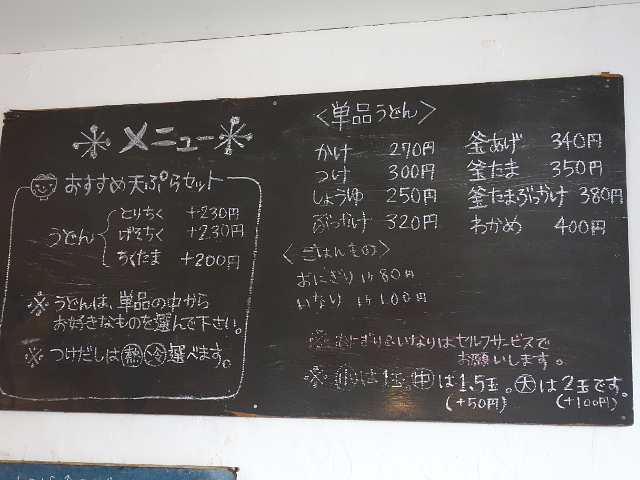 ※メニュー※
おすすめ天ぷらセット
うどん
とりちく +230円
げそちく +230円
ちくたま +200円
※うどんは、単品の中から
お好きなものを選んで下さい。
※つけだしは熱冷選べます。
〈単品うどん〉
かけ 270円
つけ 300円
しょうゆ 250円
ぶっかけ 320円
釜あげ 340円
釜たま 350円
釜たまぶっかけ 380円
わかめ 400円
〈ごはんもの〉
おにぎり 1ケ80円
いなり 1ケ100円
※おにぎり&いなりはセルフサービスで
お願いします。
※小は1玉、中は1.5玉。大は2玉です。
(+50円) (+100円)